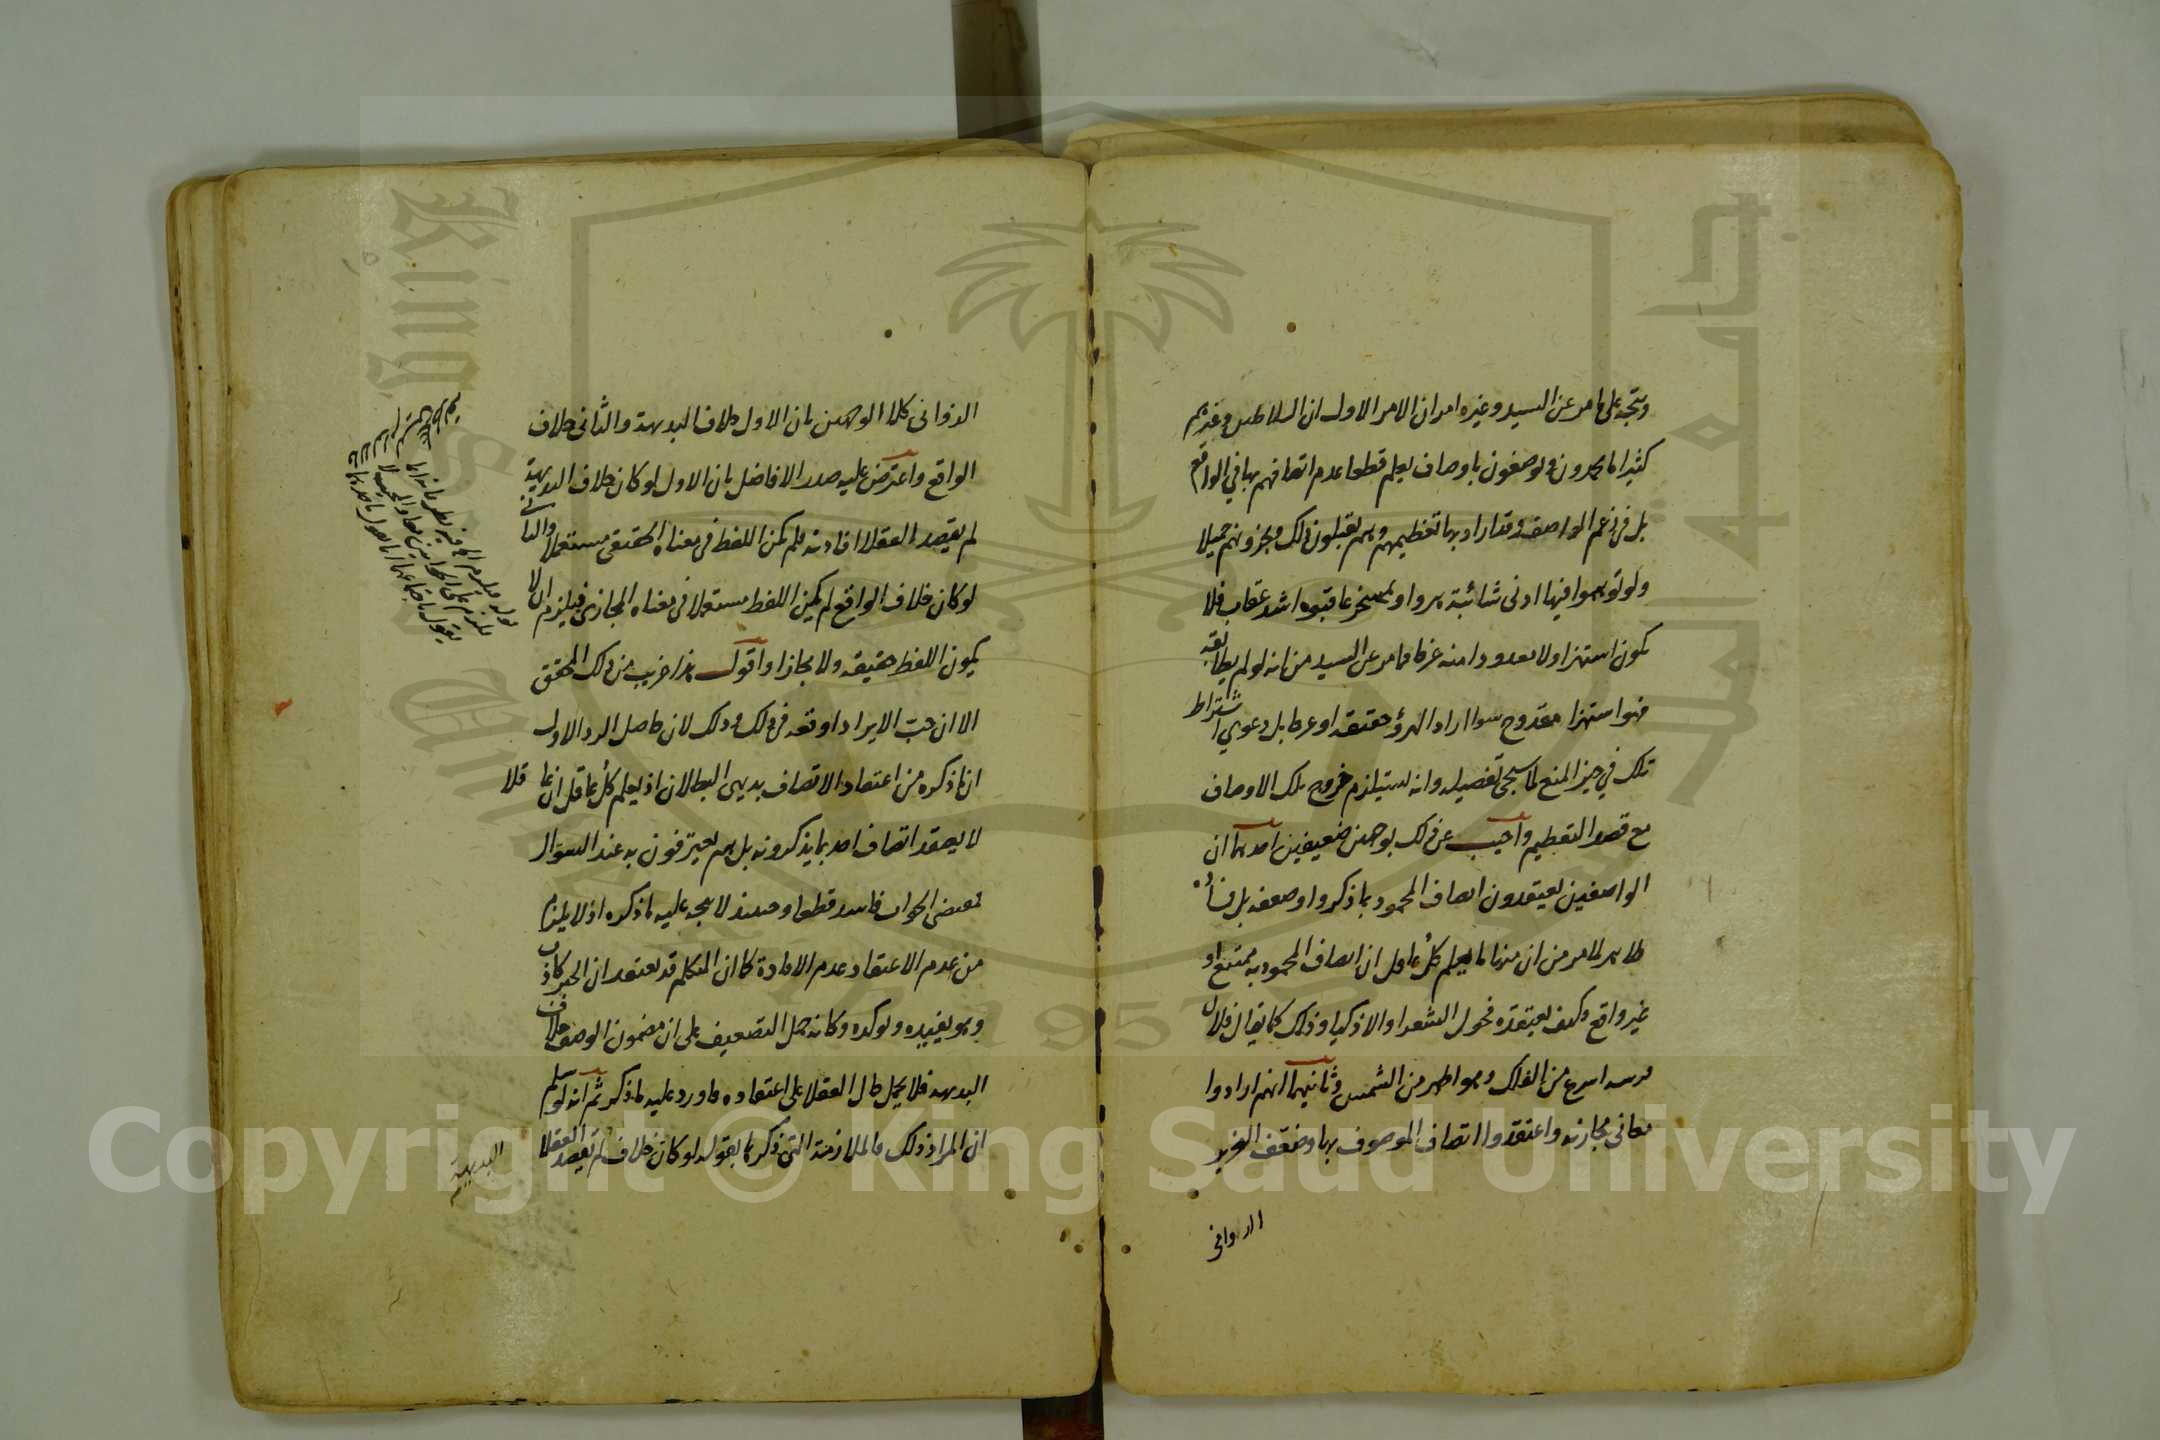 ويتجه على ما مر عن السيد وغيره امران الامر الاول ان السلاطين وغيرهم
كثيرا ما يحمدون ويوصفون باوصاف يعلم قطعا عدم اتصافهم بها في الواقع
بل في زعم الواصف وقد اراد بها تعظيمهم وهم يقبلون ذلك ويجزونهم جميلا
ولو توهموا فيها ادنى شائبة هزؤ او تمسخر عاقبوه اشد عقاب فلا
يكون استهزاء ولا معدودا منه عرفا فما مر عن السيد من انه لو لم يطابقه
فهو استهزاء مقدوح سواء اراد الهزؤ حقيقة او عرفا بل دعوى اشتراط
تلك في حيز المنع لما سيجئ تفصيله وانه يستلزم خروج تلك الاوصاف
مع قصد التعظيم واجيب عن ذلك بوجهين ضعيفين احدهما ان
الواصفين يعتقدون اتصاف المحمود بما ذكروا وضعفه بل فساده
ظاهر لما مر من ان منها ما يعلم كل عاقل ان اتصاف المحمود به ممتنع او
غير واقع وكيف يعتقده فحول الشعراء والاذكياء وذلك كما يقال فلان
فرسه اسرع من الفلك وهو اظهر من الشمس وثانيهما انهم ارادوا
معانى مجازية واعتقدوا اتصاف الموصوف بها وضعف
الدوانى
الدوانى كلا الوجهين بان الاول خلاف البديهة والثانى خلاف
الواقع واعترض عليه صدر الافاضل بان الاول لو كان خلاف البديهة
لم يقصد العقلاء افادته فلم يكن اللفظ في معناه الحقيقى مستعملا والثانى
لو كان خلاف الواقع لم يكن اللفظ مستعملا في معناه المجازى فيلزم ان لا
يكون اللفظ حقيقة ولا مجازا واقول هذا غريب من ذلك المحقق
الا ان حب الايراد اوقعه في ذلك وذلك لان حاصل الرد الاول
ان ما ذكره من اعتقاد الاتصاف بديهى البطلان اذ يعلم كل عاقل ان عاقلا
لا يعتقد اتصاف احد بما يذكرونه بل هم يعترفون به عند السؤال
فمقتضى الجواب فاسد قطعا وحينئذ لا يتجه عليه ما ذكره اذ لا يلزم
من عدم الاعتقاد عدم الافادة كما ان المتكلم قد يعتقد ان الخبر كاذب
وهو يفيده ويؤكده وكانه حمل التضعيف على ان مضمون الوصف خلاف
البديهة فلا يحمل حال العقلاء على اعتقاده فاورد عليه ما ذكر ثم انه لو سلم
ان المراد ذلك فالملازمة التى ذكرها بقوله لو كان خلاف لم يقصد العقلاء
البديهة